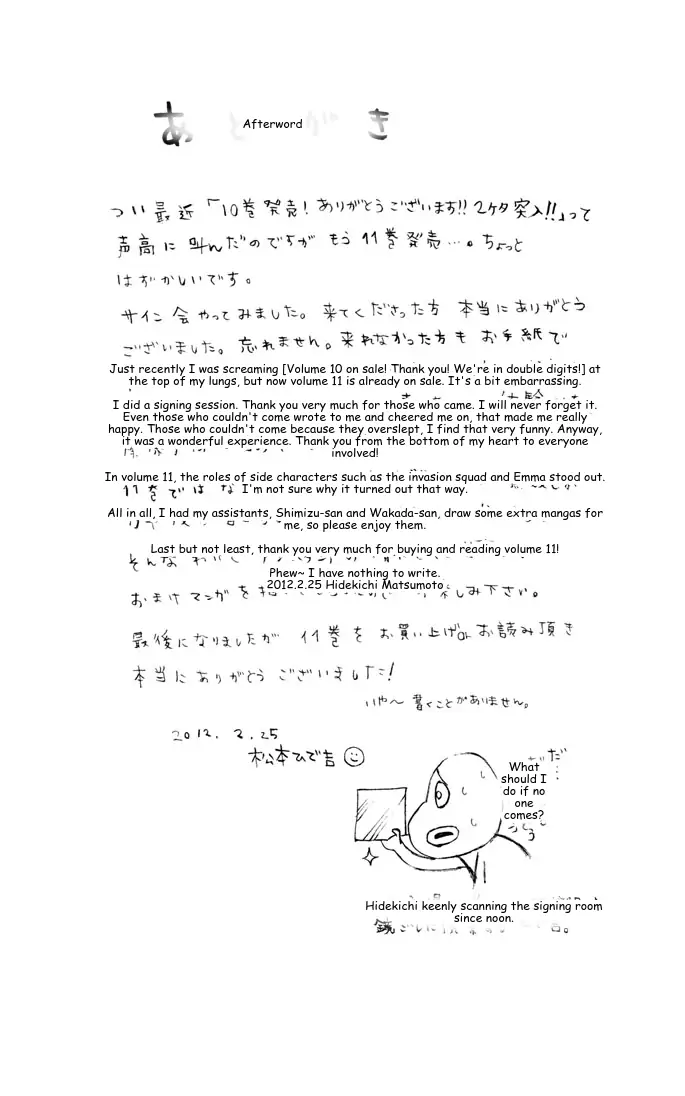 あとがき
Afterword
つい最近「10巻発売!ありがとうございます!!2ケタ突入!!」って
声高に叫んだのですがもう11巻発売…。ちょっと
はずかしいです。
サイン会やってみました。来てくださった方 本当にありがとう
ございました。忘れません。来れなかった方も お手紙で
Just recently I was screaming [Volume 10 on sale! Thank you! We're in double digits!] at
the top of my lungs, but now volume 11 is already on sale. It's a bit embarrassing.
I did a signing session. Thank you very much for those who came. I will never forget it.
Even those who couldn't come wrote to me and cheered me on, that made me really
happy. Those who couldn't come because they overslept, I find that very funny. Anyway,
it was a wonderful experience. Thank you from the bottom of my heart to everyone
involved!
In volume 11, the roles of side characters such as the invasion squad and Emma stood out.
11巻では な
I'm not sure why it turned out that way.
All in all, I had my assistants, Shimizu-san and Wakada-san, draw some extra mangas for
me, so please enjoy them.
Last but not least, thank you very much for buying and reading volume 11!
そんな
Phew~ I have nothing to write.
2012.2.25 Hidekichi Matsumoto
おまけマンガを 楽しみ下さい。
最後になりましたが 11巻を お買い上げorお読み頂き
本当にありがとうございました!
いや〜 書くことがありません。
2012. 2. 25
松本ひで吉
だ…
What
should I
do if no
one
comes?
Hidekichi keenly scanning the signing room
since noon.
鏡ごしに 吉。